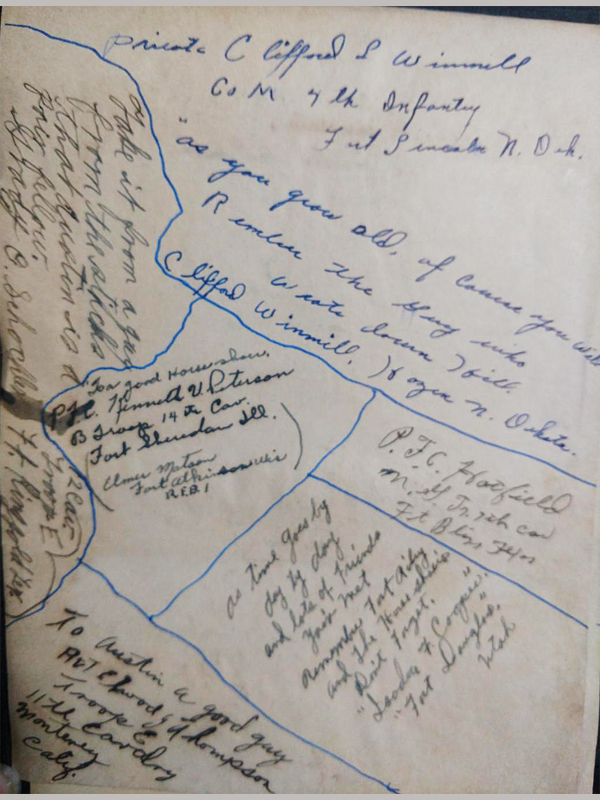 Private Clifford L Winmill
Co M 4th Infantry
Fort Lincoln N. Dak.
"as you grow old, of course you will
Rember the guy who
wrote down hill.
Clifford Winmill, N. Dakota.
Take it from a guy
from the sticks
that Austin is a
fine fellow.
Grady O.
Troop E, 2 Cav.
Ft Ringgold Tex
To a good Horseshoer,
Pfc. Kenneth V. Peterson
B Troop 14th Cav.
Fort Sheridan Ill.
Elmer Matson
Fort Atkinson Wis
RFD 1
P.F.C. Hatfield
M. G. Tr. 7th Cav
Ft Bliss Texas
as time goes by
day by day
and lots of friends
you met
remember Fort Riley
and the Horseshoers
Don't Forget.
"Fort Douglas,"
Utah
To Austin a good guy
Pvt Elwood J Thompson
Troop E
11th Cavalry
Monterey
Calif.